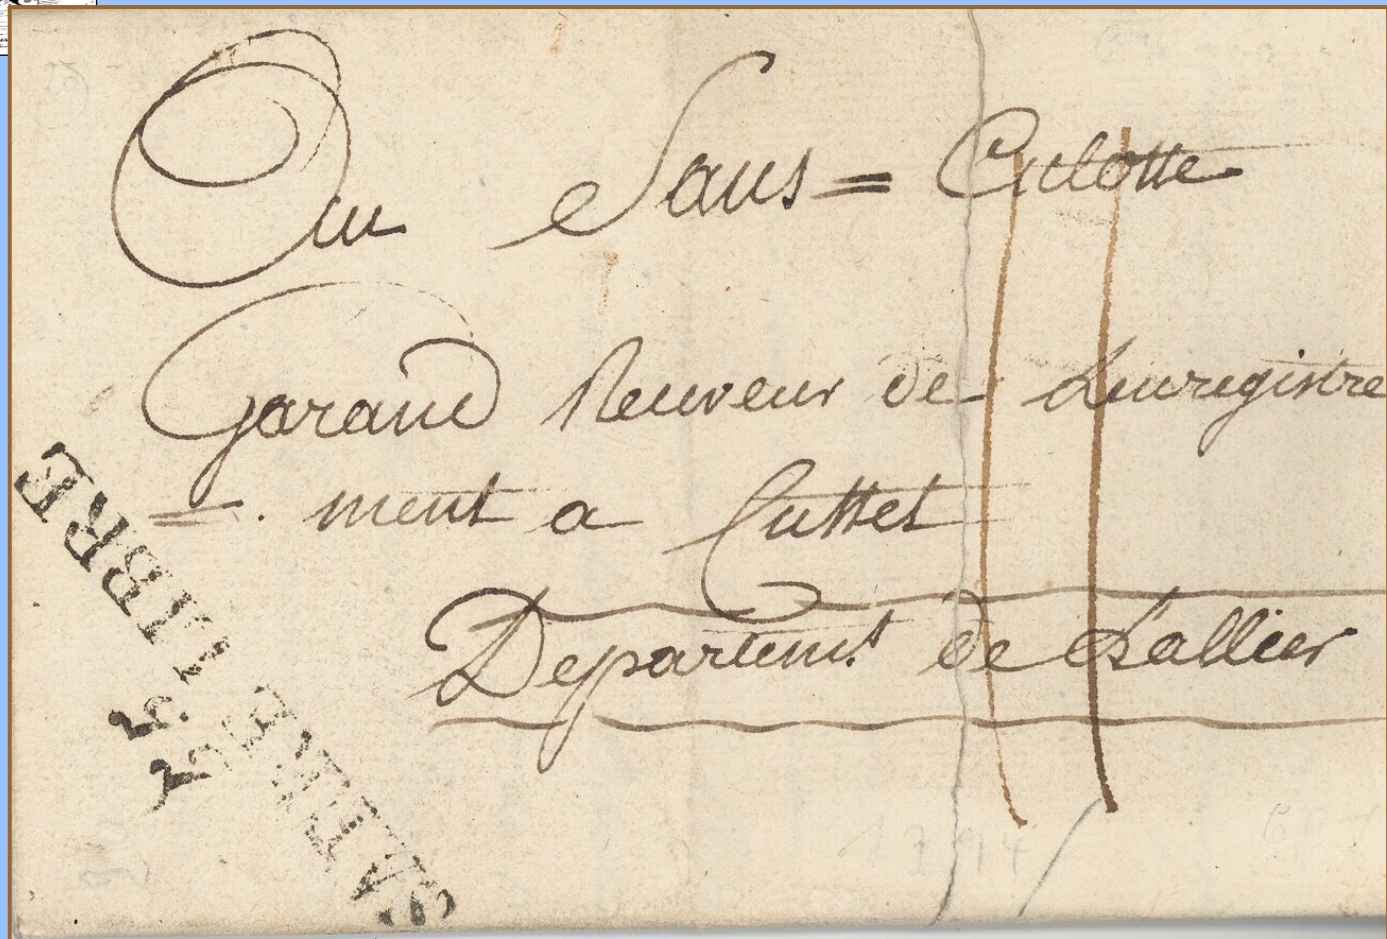 Au Sans=Culotte
Garaud Receveur de Lenregistre
=. ment a Cusset
Departem.t de Lallier
SARRE LIBRE
1794